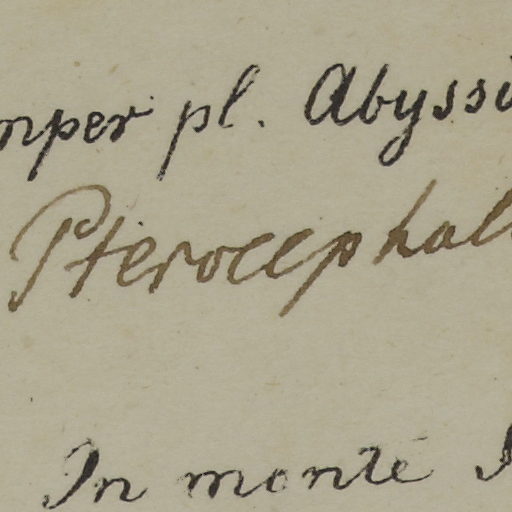 mper pl. Abyssi
Pterocephal
In monte